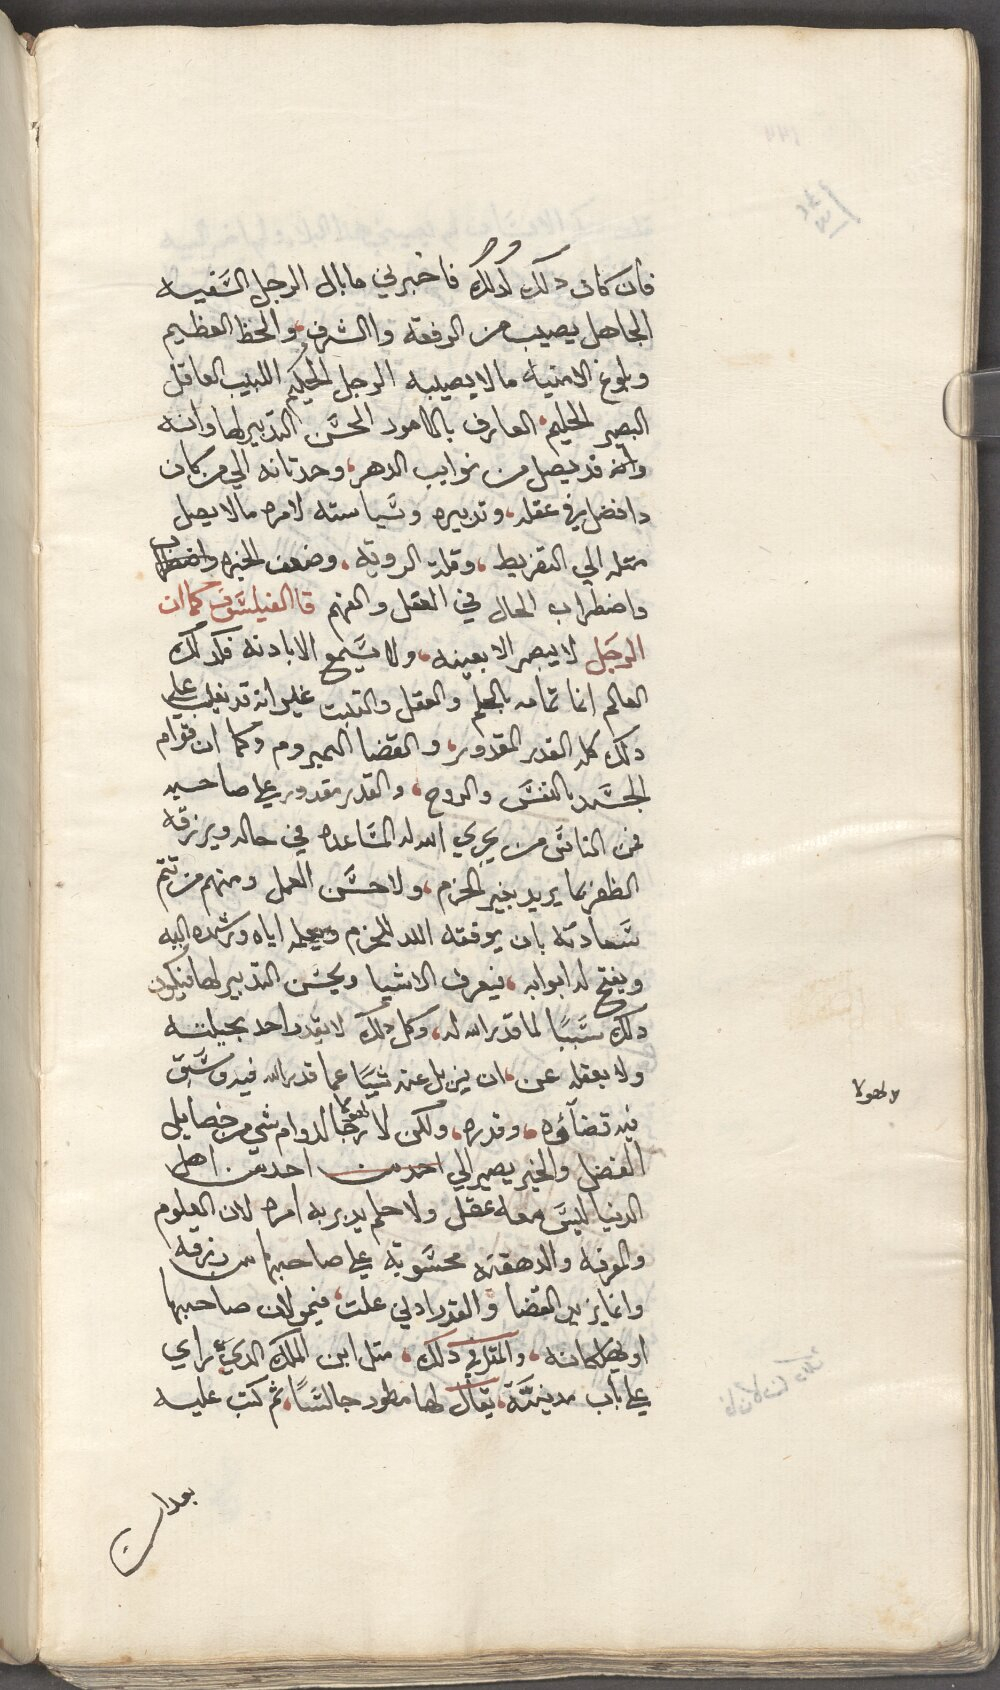 فان كان دلك كدلك فاخبرني ما بال الرجل السَّفيه
الجاهل يصيب من الرفعه واالشرف، والحظ العظيم
وبلوغ الامنيه ما لا يصيبه الرجل الحكيم اللبيب العاقل
البصير الحليم، العارف بالامور الحسَّن التدبير لها وانه
وانه قد يصل من نوايب الدهر، وحدثانه الي من كان
دا فضل في عقله، وتدبيره وسَّياسته لامره ما لا يصل
مثله الي التفريط، وقلة الرويه، وضعف الخبره واضطراب
واضطراب الحال في العقل والفهم قا الفيلسَّوف كما ان
الرجل لا يبصر الا بعينه، ولا يسَّمع الا بادنه فكدلك
العالم انما تمامه بالحلم والعقل والتثبت غير انه قد يغلب علي
دلك كله القدر المقدور، والقضا المبروم وكما ان قوام
الجسَّد بالنفسَّ والروح، والقدر مقدور علي صاحبه
فمن الناسَّ من يجري الله له المسَّاعده في حاله ويرزقه
الظفر بما يريد بغير الحزم، ولا حسَّن العمل ومنهم من تتم
سَّعادته بان يوفقه الله للحزم ويعلمه اياه ويرشده اليه
ويفتح له ابوابه، فيعرف الاشيا ويحسَّن التدبير لها فيكون
دلك سَّببًا لما قدر الله له، وكل دلك لا يقدر احد بحيلته
ولا بعقله عن، ان يزيل عنه شيًا عما قدر الله فيه وسَّبق
فيه قضآؤه، وقدره، ولكن لا نرجا لدوام شي من خصايل
الفضل والخير يصير الي احد من احد من اهل
الدنيا ليسَّ معه عقل ولا حلم يدبر به امره لان العلوم
والمعرفه والدهقنه محسَّوبة علي صاحبها من رزقه
وانما يزيد القضا والقدر ادني علت، فيمو لان صاحبها
او يهلكانه، والمثل في دلك، مثل ابن الملك الدي راي
علي باب مدينَّة، يقال لها مطور جالسًا، ثم كتب عليه
بعد ان